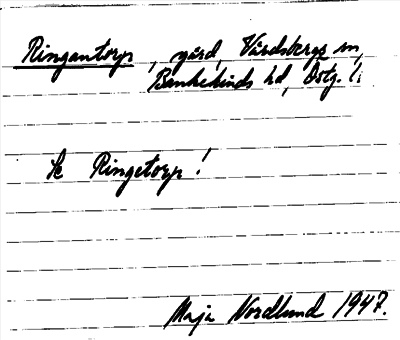 Ringantorp, gård, Vårdsbergs sn,
Bankekinds hd, Östg. l.
Se Ringetorp!
Maja Nordlund 1947.